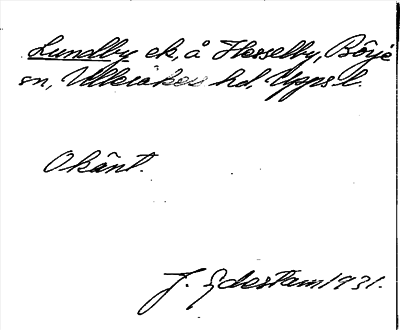 Lundby ek, å Hesselby, Börje
sn, Ulleråkers hd, Upps l.
Okänt.
J. Edestam 1931.